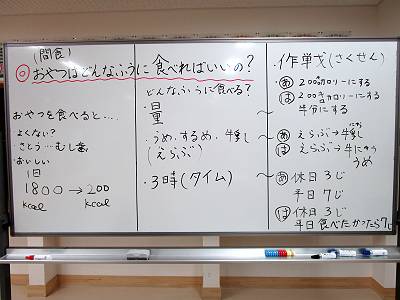 (間食)
◎おやつはどんなふうに食べればいいの?
おやつを食べると…
よくない?
・さとう…むし歯
・おいしい
1日
1800→200
kcal kcal
どんなふうに食べる?
・量
・うめ、するめ・
(えらぶ)
・3時(タイム)
・作戦(さくせん)
あ 200キロカロリーにする
は 200キロカロリーにする
半分にする
〜
〜 あ えらぶ→
は えらぶ→牛にゅう
うめ
〜 あ 休日 3じ
平日 7じ
は 休日 3じ
平日 食べたかったら7じ